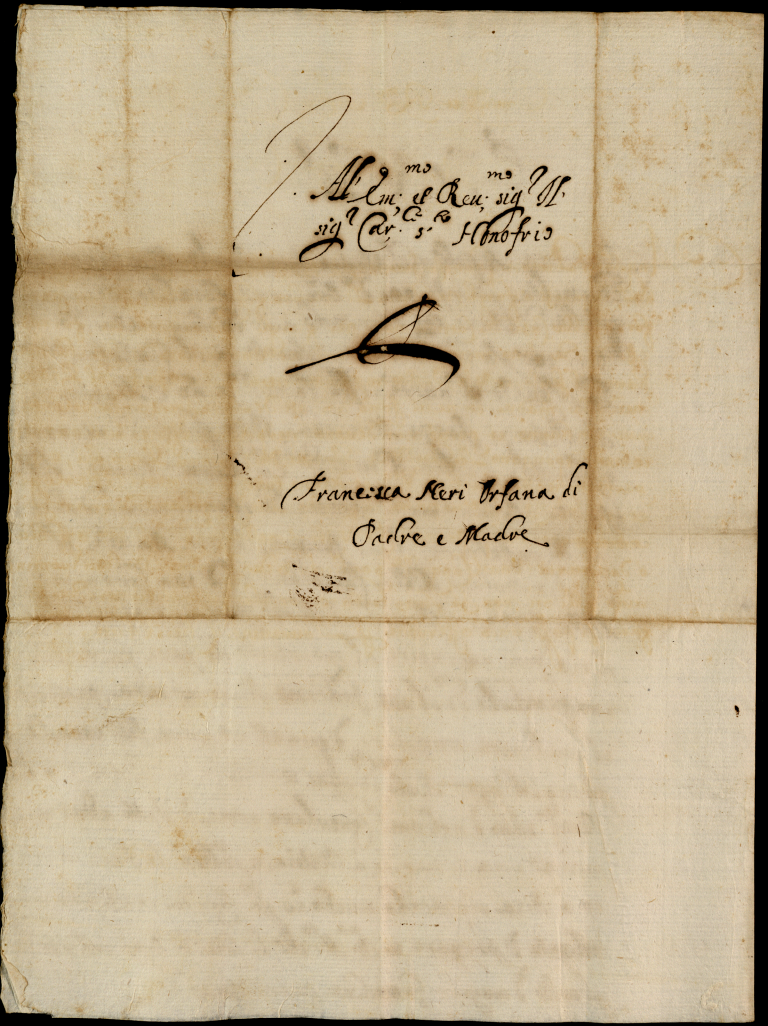 All' Em:mo et Reu:mo sig.r Il
sig.r Car: S. Honofrio
Francisca Neri Orfana di
Padre e Madre